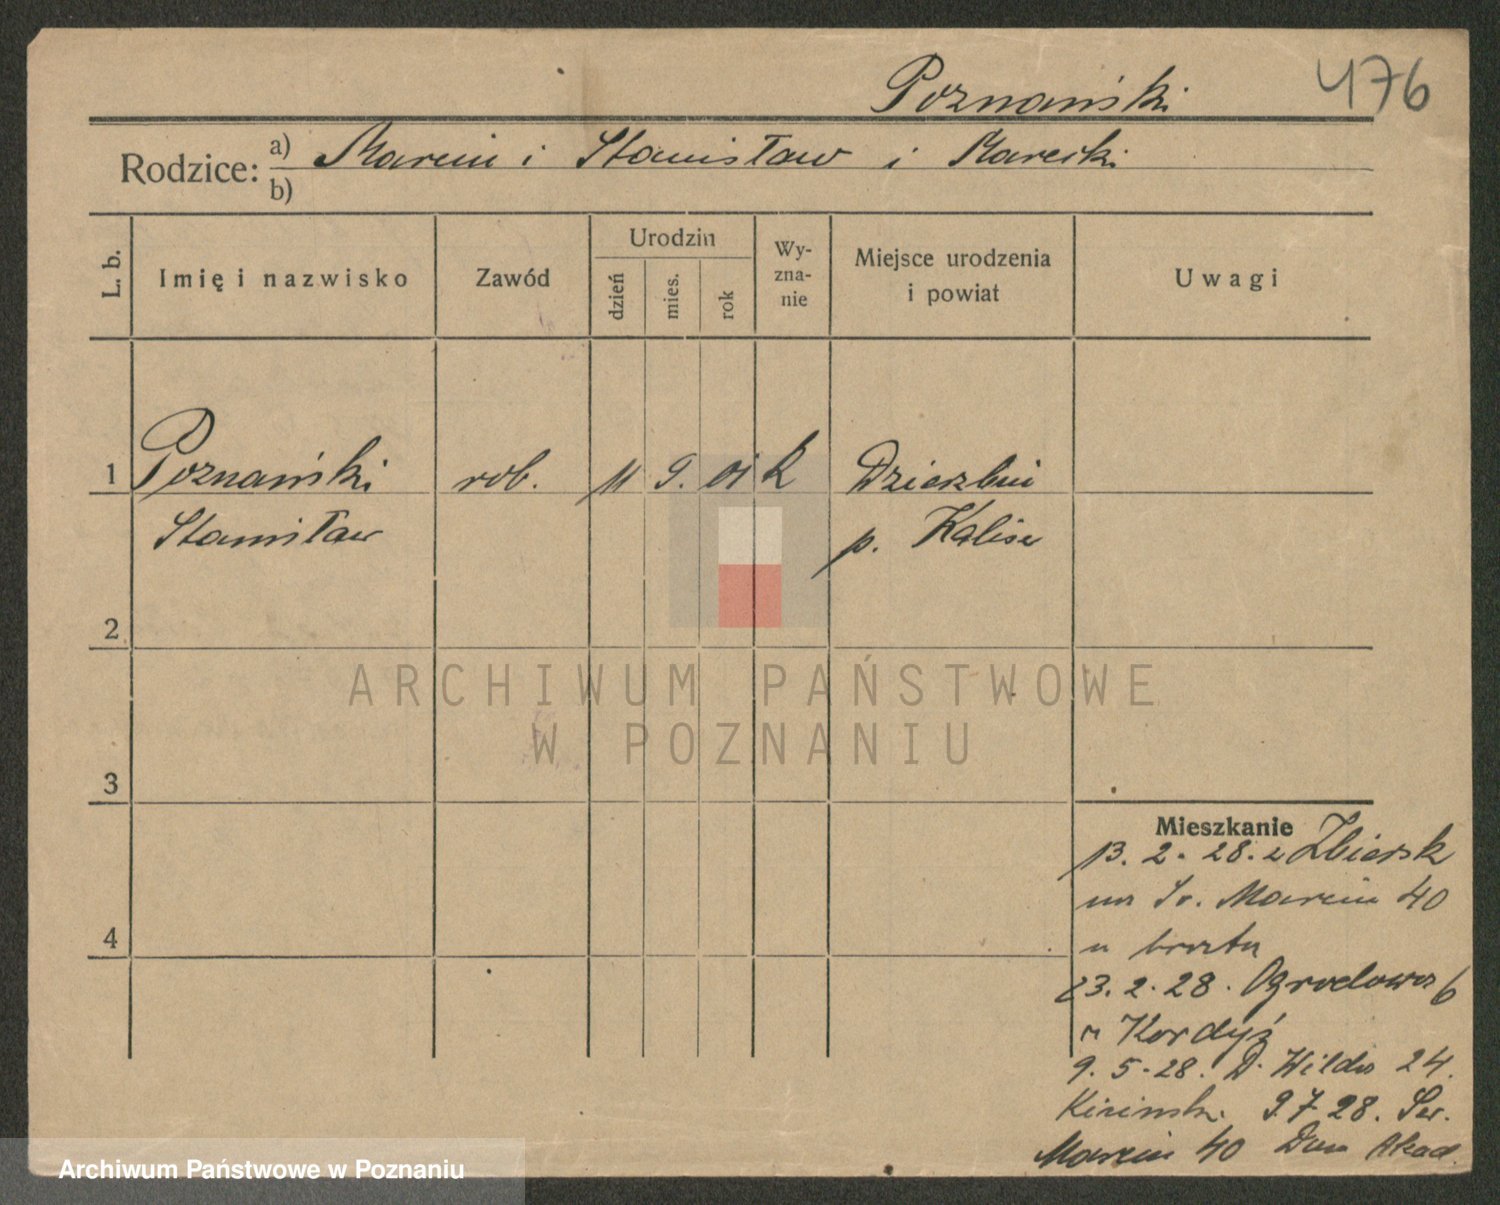 Poznański 476
Rodzice: a) Marcin i Stanisław i
b)
L. b. Imię i nazwisko Zawód Urodzin dzień mies. rok Wy-zna-nie Miejsce urodzenia i powiat Uwagi
1 Poznański rob. 11 9. 01 k Dzierzbin
Stanisław p. Kalisz
2
ARCHIWUM PAŃSTWOWE
W POZNANIU
3
4
Mieszkanie
13. 2. 28. z Zbiersk
na Św. Marcin 40
u brata
23. 2. 28. Ogrodowa 6
Kordyś
9. 5. 28. D. Wilda 24.
9.7.28. Św.
Marcin 40 Dom Akad.
Archiwum Państwowe w Poznaniu